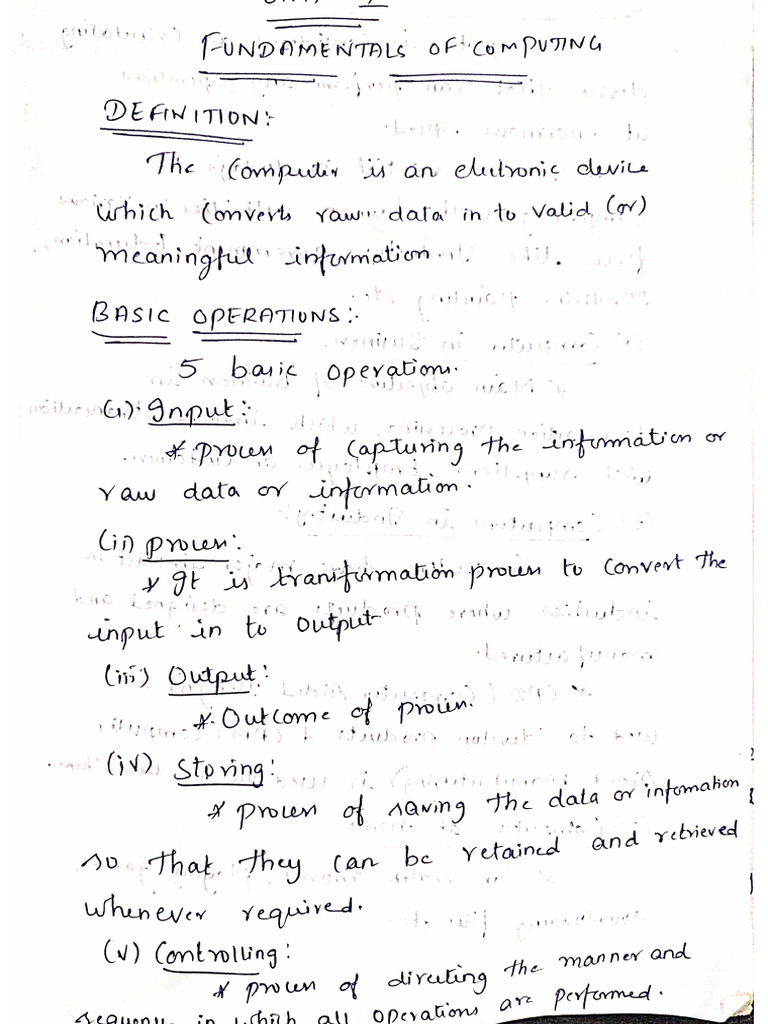 FUNDAMENTALS OF COMPUTING
DEFINITION:-
The Computer is an electronic device
which converts raw data in to valid (or)
meaningful information.
BASIC OPERATIONS:-
5 basic operations.
(i). Input:-
* process of capturing the information or
raw data or information.
(ii) process:-
* It is transformation process to convert the
input in to output
(iii) Output:
* Outcome of process.
(iv) Storing:
* process of saving the data or infomation
so that they can be retained and retrieved
whenever required.
(v) Controlling:
* process of directing the manner and
sequence in which all operations are performed.